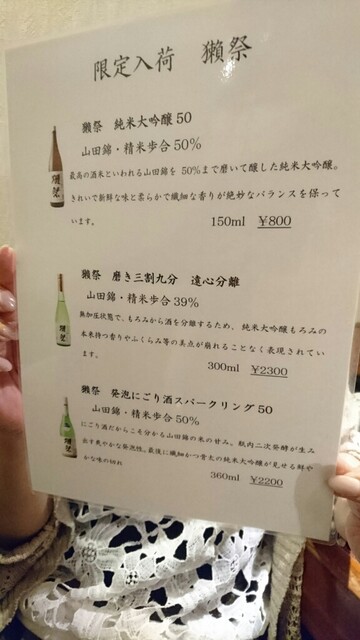 限定入荷　獺祭
獺祭　純米大吟醸 50
山田錦・精米歩合 50%
最高の酒米といわれる山田錦を 50%まで磨いて醸した純米大吟醸。
きれいで新鮮な味と柔らかで繊細な香りが絶妙なバランスを保って
います。
150ml ¥800
獺祭　磨き三割九分　遠心分離
山田錦・精米歩合 39%
無加圧状態で、もろみから酒を分離するため、純米大吟醸もろみの
本来持つ香りやふくらみ等の美点が崩れることなく表現されてい
ます。
300ml ¥2300
獺祭　発泡にごり酒スパークリング 50
山田錦・精米歩合 50%
にごり酒だからこそ分かる山田錦の米の甘み。瓶内二次発酵が生み
出す爽やかな発泡性。最後に繊細かつ骨太の純米大吟醸が見せる鮮や
かな味の切れ
360ml ¥2200